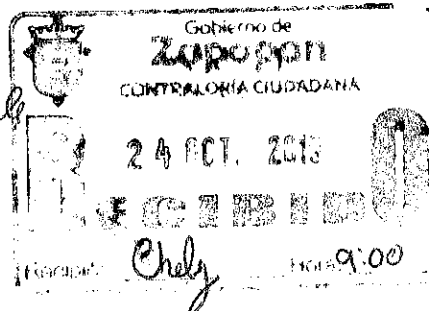 Gobierno de
Zapopan
CONTRALORÍA CIUDADANA
24 OCT.
RECIBIDO
Chely Hora 9:00